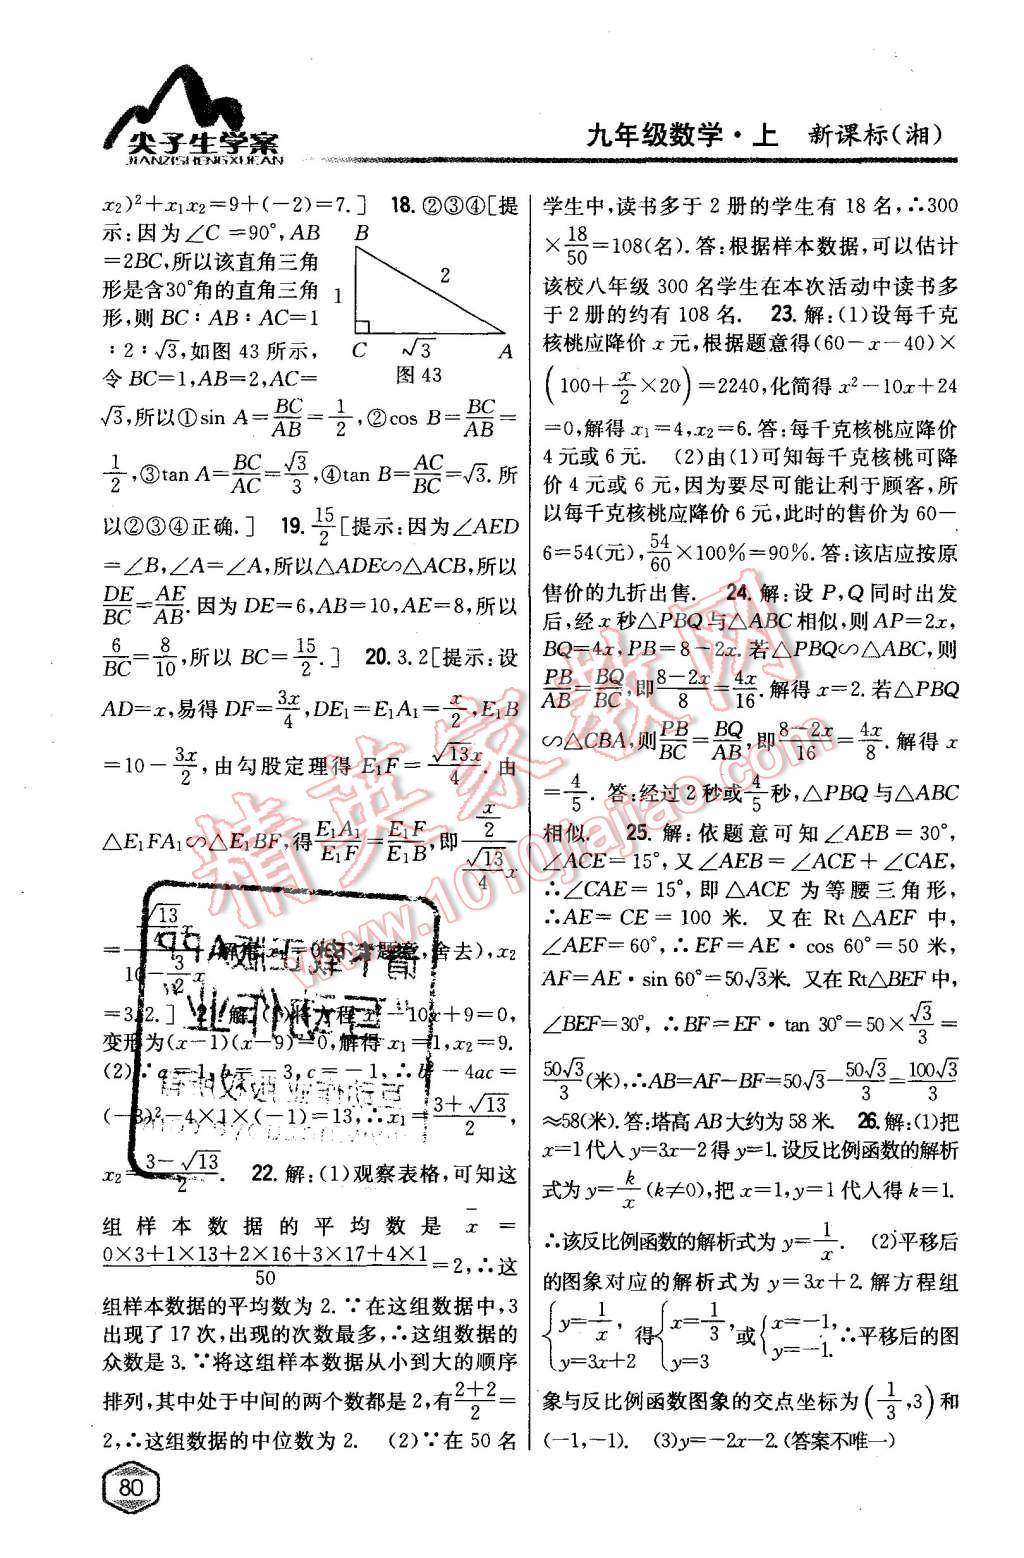 尖子生学案
JIANZISHENGXUEAN
九年级数学·上 新课标(湘)
x₂)²+x₁x₂=9+(-2)=7.] 18.②③④[提
示:因为∠C=90°,AB
=2BC,所以该直角三角
形是含30°角的直角三角
形,则 BC∶AB∶AC=1
∶2∶√3,如图 43 所示,
令 BC=1,AB=2,AC=
B
2
1
C √3 A
图 43
√3,所以①sin A=BC/AB=1/2,②cos B=BC/AB=
1/2,③tan A=BC/AC=√3/3,④tan B=AC/BC=√3.所
以②③④正确.] 19.15/2[提示:因为∠AED
=∠B,∠A=∠A,所以△ADE∽△ACB,所以
DE/BC=AE/AB.因为 DE=6,AB=10,AE=8,所以
6/BC=8/10,所以 BC=15/2.] 20.3.2[提示:设
AD=x,易得 DF=3x/4,DE₁=E₁A₁=x/2,E₁B
=10-3x/2,由勾股定理得 E₁F=√13x/4.由
△E₁FA₁∽△E₁BF,得E₁A₁/E₁F=E₁F/E₁B,即(x/2)/(√13/4 x)
=(√13/4 x)/(10-3/2 x),解得 x₁=0(不 题意,舍去),x₂
=3.2.] 21.解:(1)将方程 x²-10x+9=0,
变形为(x-1)(x-9)=0,解得 x₁=1,x₂=9.
(2)∵a=1,b=-3,c=-1,∴b²-4ac=
(-3)²-4×1×(-1)=13,∴x₁=(3+√13)/2,
x₂=(3-√13)/2. 22.解:(1)观察表格,可知这
组样本数据的平均数是 x̄=
(0×3+1×13+2×16+3×17+4×1)/50=2,∴这
组样本数据的平均数为 2.∵在这组数据中,3
出现了 17 次,出现的次数最多,∴这组数据的
众数是 3.∵将这组样本数据从小到大的顺序
排列,其中处于中间的两个数都是 2,有(2+2)/2=
2,∴这组数据的中位数为 2. (2)∵在 50 名
学生中,读书多于 2 册的学生有 18 名,∴300
×18/50=108(名).答:根据样本数据,可以估计
该校八年级 300 名学生在本次活动中读书多
于 2 册的约有 108 名. 23.解:(1)设每千克
核桃应降价 x 元,根据题意得(60-x-40)×
(100+x/2×20)=2240,化简得 x²-10x+24
=0,解得 x₁=4,x₂=6.答:每千克核桃应降价
4 元或 6 元. (2)由(1)可知每千克核桃可降
价 4 元或 6 元,因为要尽可能让利于顾客,所
以每千克核桃应降价 6 元,此时的售价为 60-
6=54(元),54/60×100%=90%.答:该店应按原
售价的九折出售. 24.解:设 P,Q 同时出发
后,经 x 秒△PBQ与△ABC相似,则 AP=2x,
BQ=4x,PB=8-2x.若△PBQ∽△ABC,则
PB/AB=BQ/BC,即(8-2x)/8=4x/16.解得 x=2.若△PBQ
∽△CBA,则PB/BC=BQ/AB,即(8-2x)/16=4x/8.解得 x
=4/5. 答:经过 2 秒或4/5秒,△PBQ与△ABC
相似. 25.解:依题意可知∠AEB=30°,
∠ACE=15°,又∠AEB=∠ACE+∠CAE,
∴∠CAE=15°,即△ACE 为等腰三角形,
∴AE=CE=100 米. 又在 Rt△AEF 中,
∠AEF=60°,∴EF=AE·cos 60°=50 米,
AF=AE·sin 60°=50√3米. 又在Rt△BEF中,
∠BEF=30°,∴BF=EF·tan 30°=50×√3/3=
50√3/3(米),∴AB=AF-BF=50√3-50√3/3=100√3/3
≈58(米).答:塔高 AB 大约为 58 米. 26.解:(1)把
x=1代入 y=3x-2得 y=1.设反比例函数的解析
式为 y=k/x(k≠0),把 x=1,y=1代入得 k=1.
∴该反比例函数的解析式为 y=1/x. (2)平移后
的图象对应的解析式为 y=3x+2.解方程组
{y=1/x, y=3x+2 得{x=1/3, y=3 或{x=-1, y=-1. ∴平移后的图
象与反比例函数图象的交点坐标为(1/3,3)和
(-1,-1). (3)y=-2x-2.(答案不唯一)
80
精英家教网
www.1010jiajiao.com